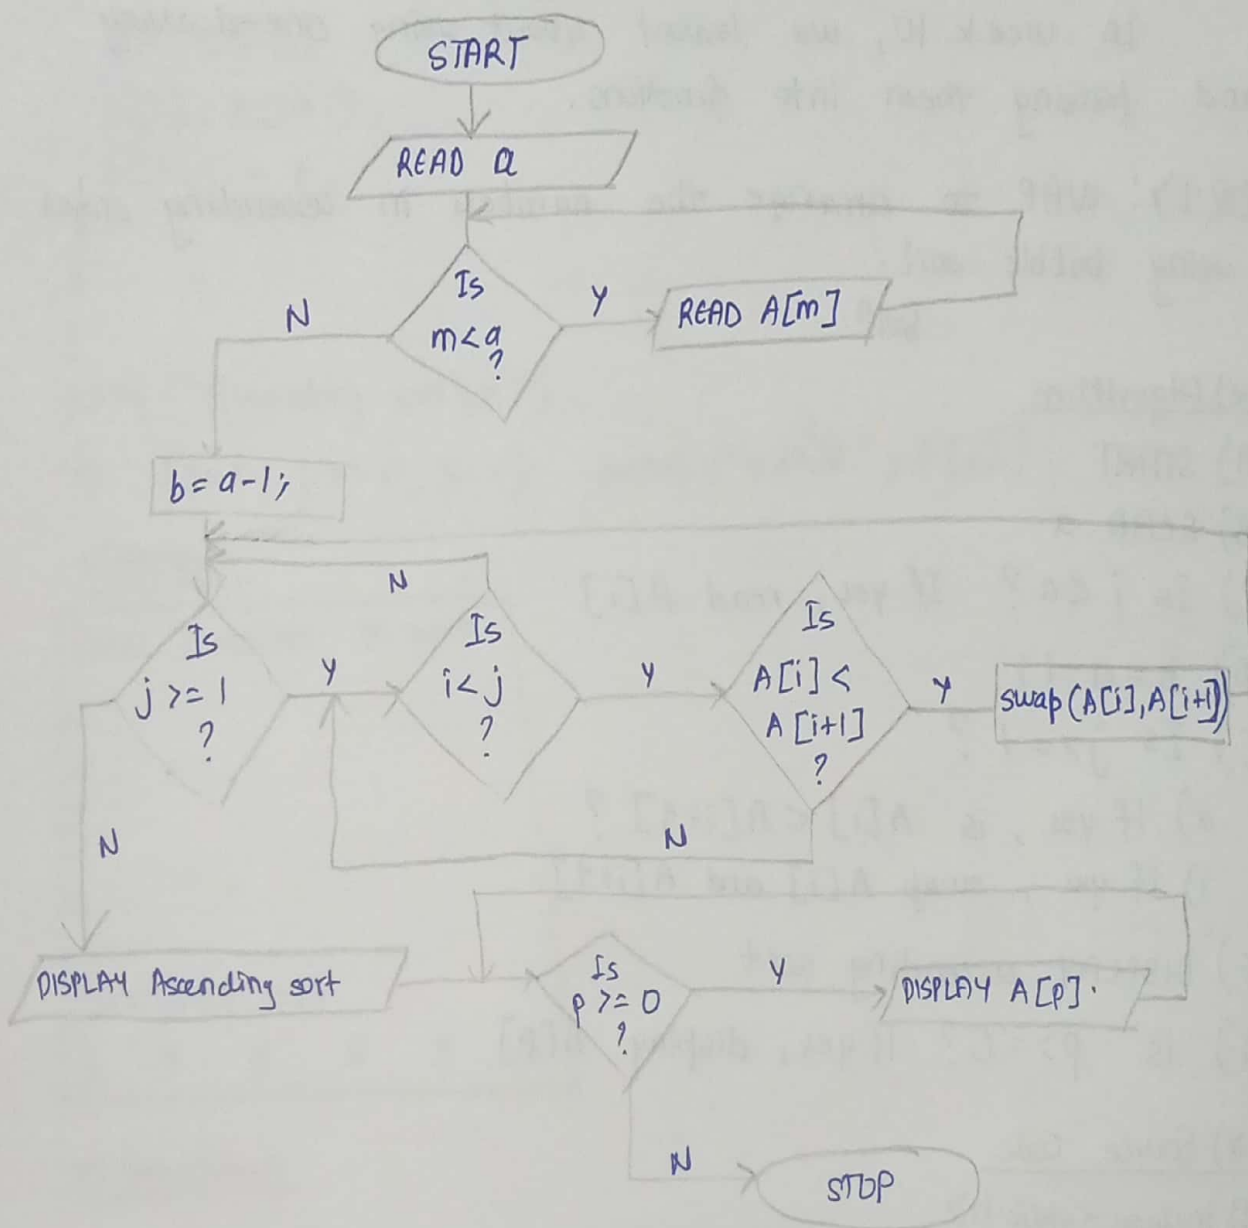 START
READ a
Is
m<a
?
Y
READ A[m]
N
b=a-1;
N
Is
j>=1
?
Y
Is
i<j
?
Y
Is
A[i]<
A[i+1]
?
Y
swap(A[i],A[i+1])
N
N
DISPLAY Ascending sort
Is
p>=0
?
Y
DISPLAY A[p].
N
STOP